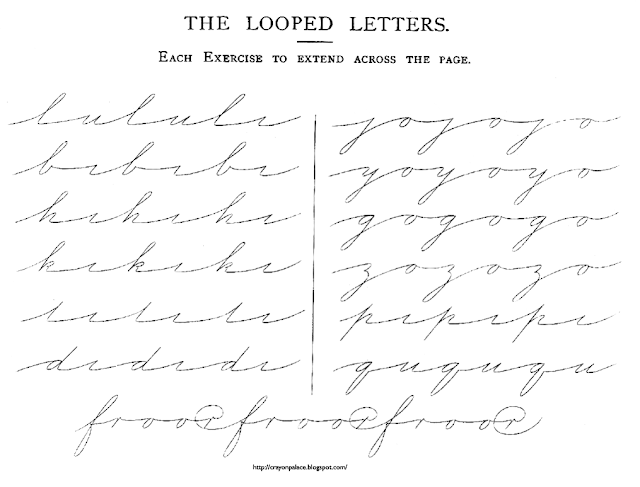 THE LOOPED LETTERS.
EACH EXERCISE TO EXTEND ACROSS THE PAGE.
lululi
bibibi
hihihi
kikiki
tititi
dididi
jojojo
yoyoyo
gogogo
zozozo
pipipi
quququ
froorfroorfroor
http://crayonpalace.blogspot.com/